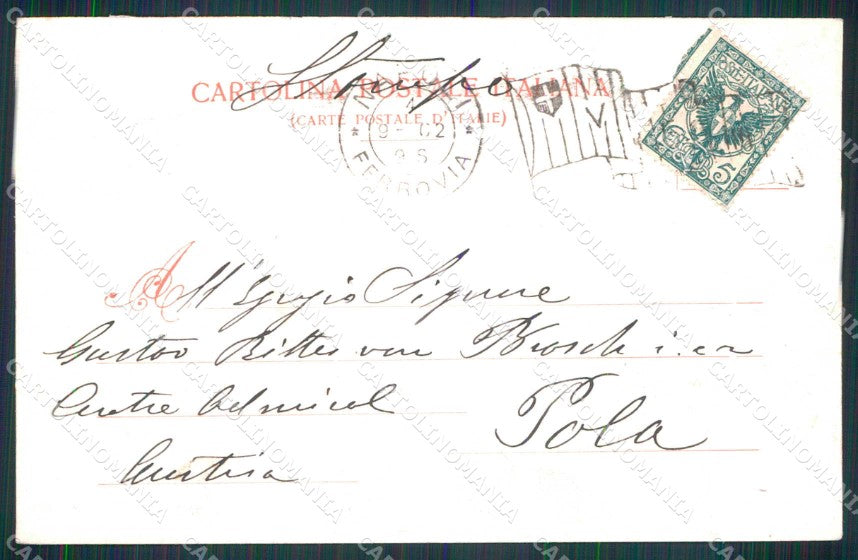 Stampe
CARTOLINA POSTALE ITALIANA
(CARTE POSTALE D'ITALIE)
NAPOLI
FERROVIA
POSTE ITALIANE
CENTESIMI 5
All'Egregio Signore
Gustav Ritter von Brosch i. er
Contre Admiral
Pola
Austria
CARTOLINOMANIA